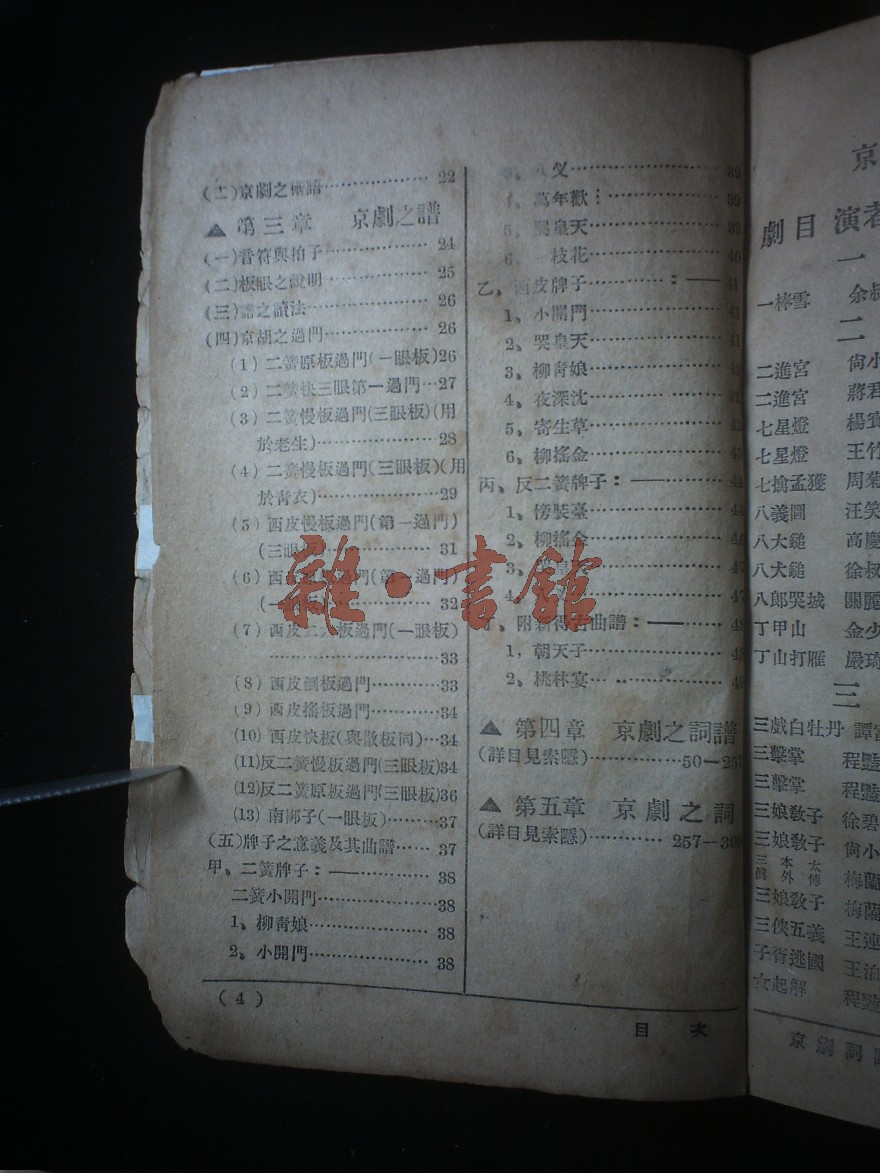 (二)京劇之術語……………… 22
▲ 第三章 京劇之譜
(一)音符與拍子……………… 24
(二)板眼之說明……………… 25
(三)譜之讀法……………… 26
(四)京胡之過門……………… 26
(1) 二簧原板過門(一眼板)26
(2) 二簧快三眼第一過門…27
(3) 二簧慢板過門(三眼板)(用
於老生)……………… 28
(4) 二簧慢板過門(三眼板)(用
於青衣)……………… 29
(5) 西皮慢板過門(第一過門)
(三眼板)……………… 31
(6) 西皮 過門(第一過門)
32
(7) 西皮二六板過門(一眼板)
………………………33
(8) 西皮倒板過門…………33
(9) 西皮搖板過門…………34
(10) 西皮快板(與散板同)…34
(11)反二簧慢板過門(三眼板)34
(12)反二簧原板過門(三眼板)36
(13) 南梆子(一眼板)………37
(五)牌子之意義及其曲譜…… 37
甲、二簧牌子:—………… 38
二簧小開門………………38
1、柳青娘………………… 38
2、小開門………………… 38
八 ……………… 39
萬年歡……………… 39
5、哭皇天……………… 39
6、一枝花……………… 40
乙、西皮牌子…………:— 41
1、小開門……………… 41
2、哭皇天……………… 41
3、柳青娘………………
4、夜深沈………………
5、寄生草………………
6、柳搖金………………
丙、反二簧牌子:—………
1、傍裝臺………………
2、柳搖金………………
3、 ………… 47
47
丁、附 古曲譜:—……
1、朝天子………………
2、桃林宴………………
▲ 第四章 京劇之詞譜
(詳目見索隱)……………50—257
▲ 第五章 京劇之詞
(詳目見索隱)………… 257—
(4)
目 次
雜·書館
京
劇目 演者
一
一棒雪 余
二
二進宮 尚小
二進宮 蔣君
七星燈 楊寶
七星燈 王竹
七擒孟獲 周菊
八義圖 汪笑
八大鎚 高慶
八大鎚 徐
八郎哭城 關麗
丁甲山 金少
丁山打雁 嚴琦
三
三戲白牡丹 譚富
三擊掌 程豔
三擊掌 程豔
三娘教子 徐碧
三娘教子 尚小
三本太真外傳 梅蘭
三娘教子 梅蘭
三俠五義 王連
子胥逃國 王泊
女起解 程豔
京劇詞譜